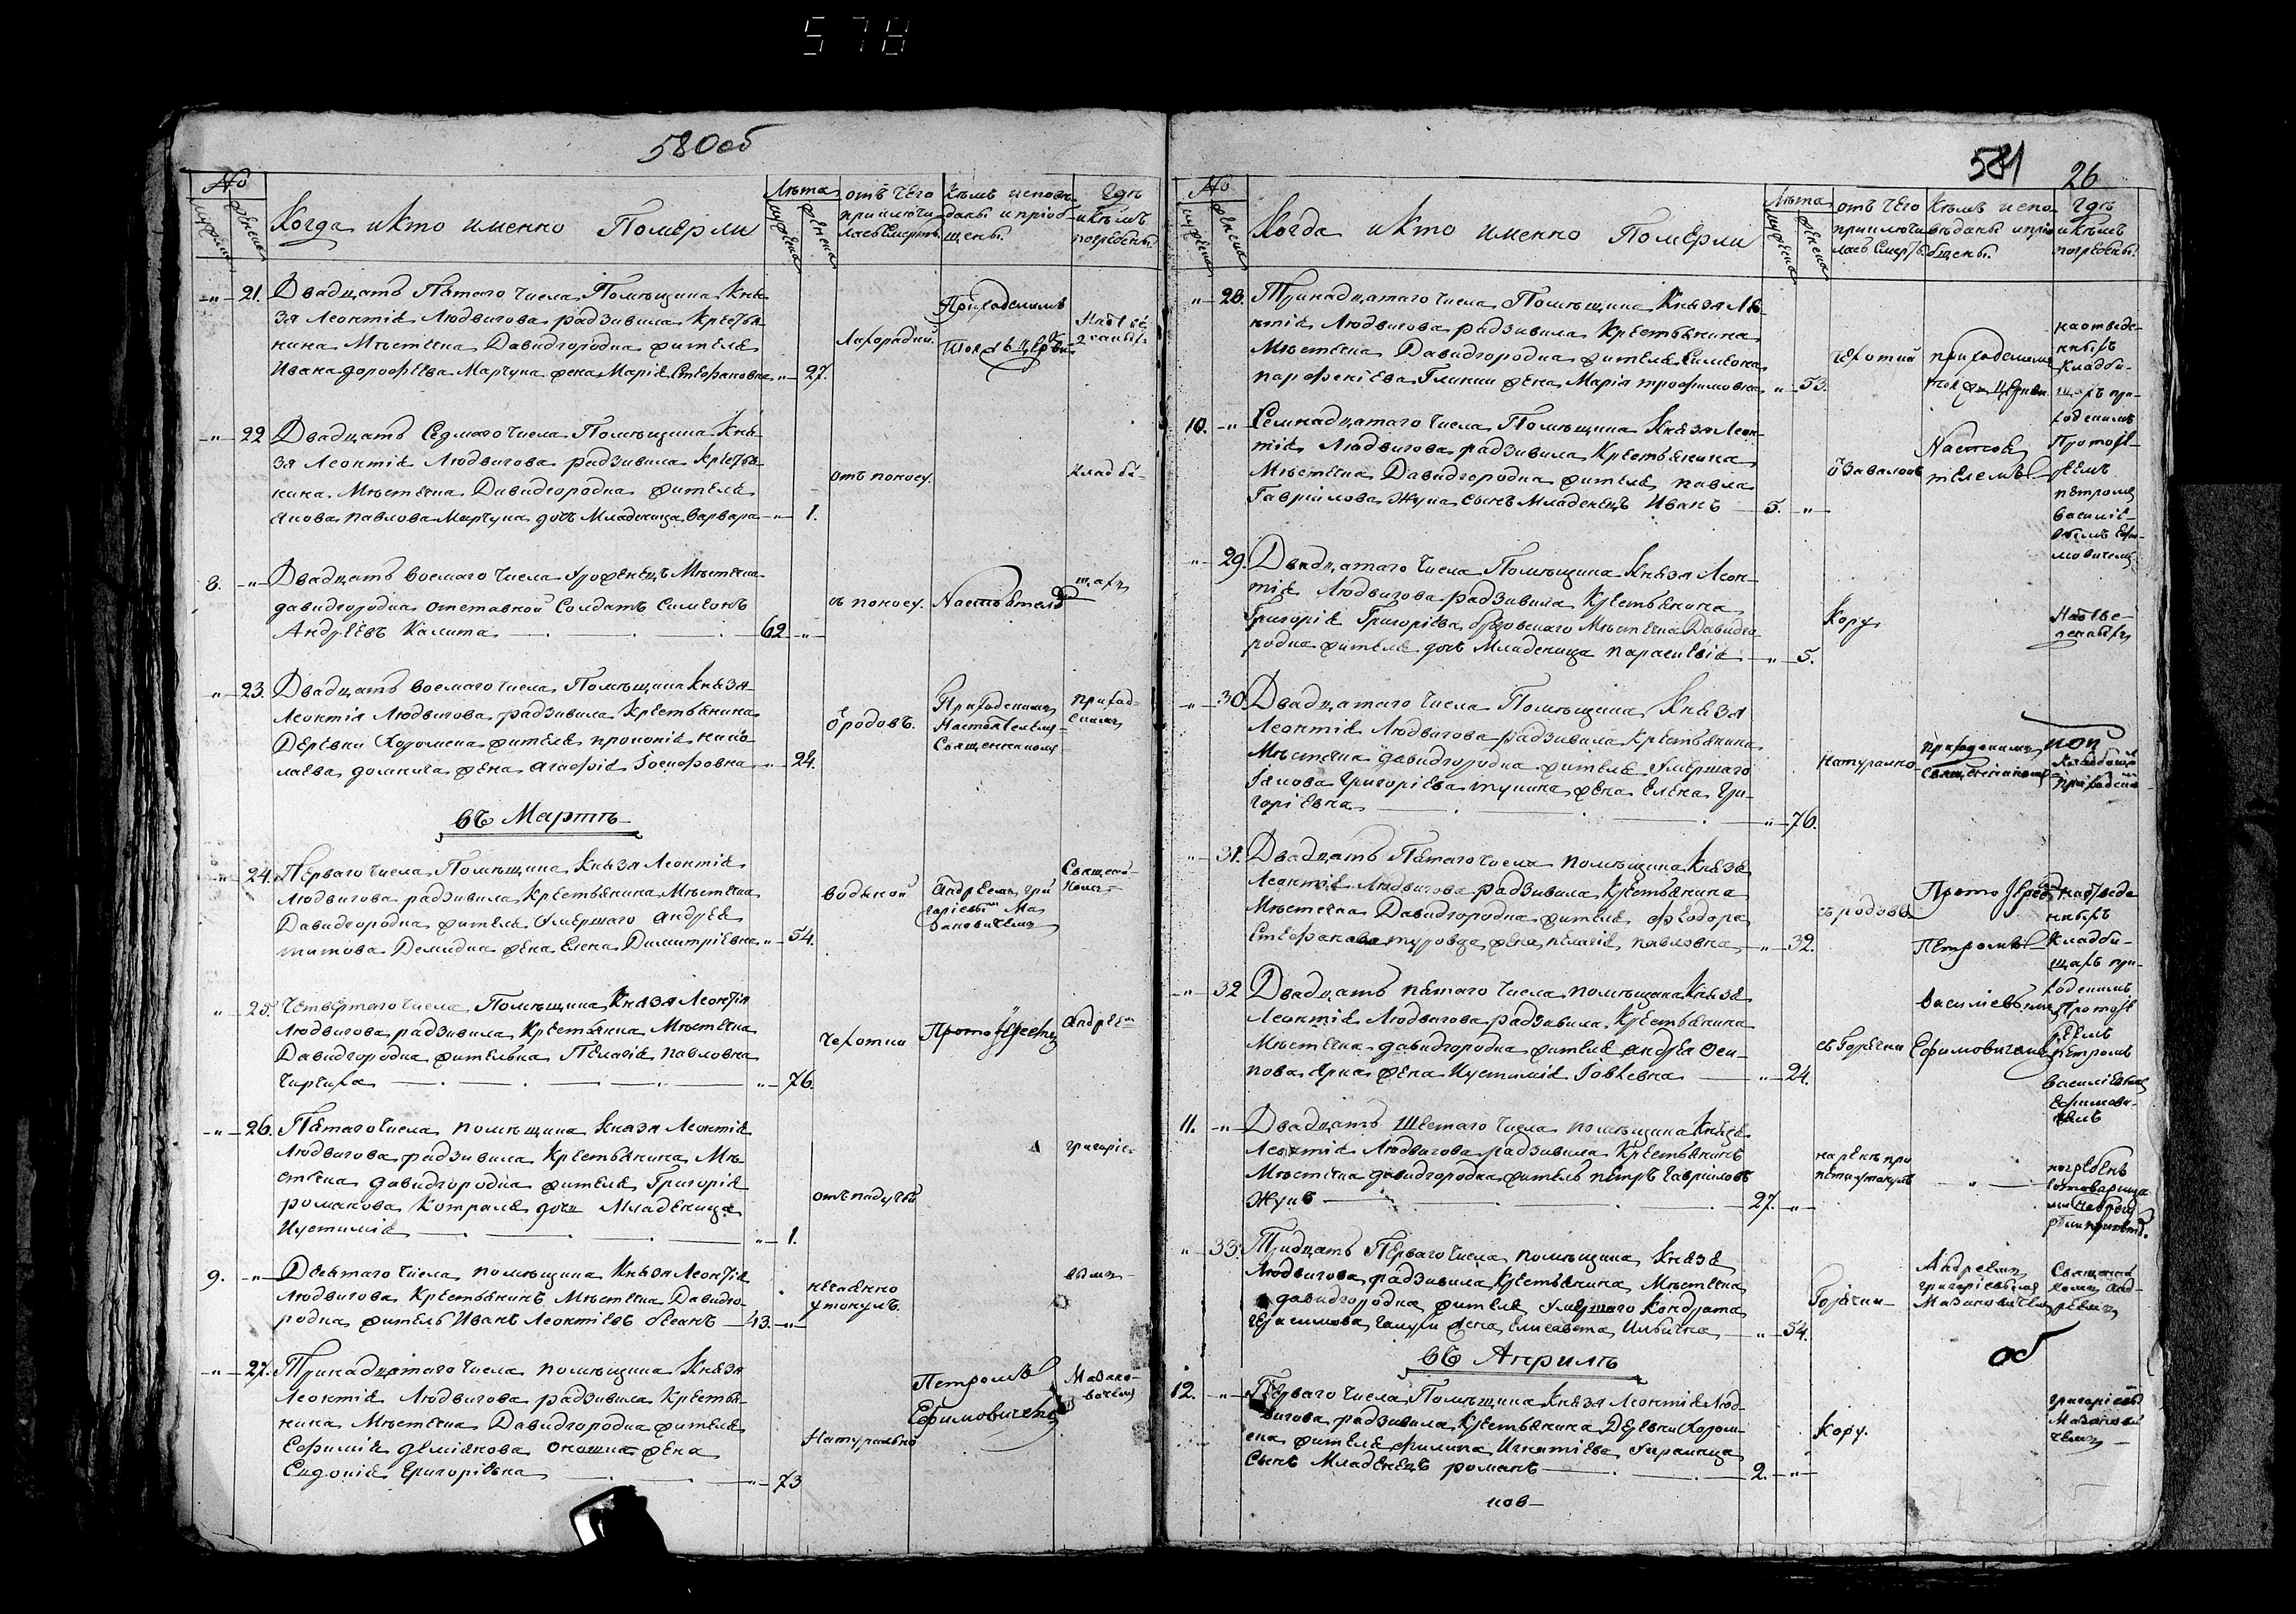 578
580об
№
мужеска
женска
Когда и кто именно Померли
Лѣта
мужеска
женска
отъ чего приключилась смерть
Кѣмъ исповѣданы и пріобщены.
Гдѣ и кѣмъ погребены.
21. Двадцать Пятаго числа Помѣщика Кня-
зя Леонтія Людвигова радзивила Крестья-
нина Мѣстечка Давидгородка жителя
Ивана дорофѣева Марчука жена Марія Стефановна 27.
Лихорадки.
Приходскимъ
22 Двадцать Седмаго числа Помѣщика Кня-
зя Леонтія Людвигова радзивила Крестья-
нина Мѣстечка Давидгородка жителя
Якова павлова Марчука дочь Младеница варвара 1.
отъ поносу.
кладби-
8. Двадцать восмаго числа Уроженецъ Мѣстечка
давидгородка отставной Солдатъ Симеонъ
Андрѣевъ Калита 62
съ поносу.
Настоятелѣ
щахъ
23. Двадцать восмаго числа Помѣщика Князя
Леонтія Людвигова радзивила Крестьянина
Деревни Хоромска жителя прокопія нико-
лаева домнича жена Агафія Іосифовна 24.
Ѿ родовъ.
Приходскимъ
Настоятелемъ
Священникомъ
приход-
скимъ
въ Мартѣ
24. Перваго числа Помѣщика Князя Леонтія
Людвигова радзивила Крестьянина Мѣстечка
Давидгородка жителя Умершаго Андрея
титова Демидка жена Елена Димитріевна 54.
водяной
Андреемъ Гри
горіевымъ Ма
зановичемъ
Священ-
комъ
25. Четвертаго числа Помѣщика Князя Леонтія
Людвигова радзивила Крестьянка Мѣстечка
Давидгородка жителька Пелагія павловна
Чирчиха 76.
чехотки
Протоіереемъ
Андреемъ
26. Пятаго числа помѣщика Князя Леонтія
Людвигова радзивила Крестьянина Мѣ-
стечка давидгородка жителя Григорія
романова Котраля дочь Младеница
Иустимія 1.
отъ падучей
григоріе-
9. Девятаго числа помѣщика Князя Леонтія
Людвигова Крестьянинъ Мѣстечка Давидго-
родка житель Иванъ Леонтіевъ 43.
нечаянно
утонулъ.
вымъ
27. Тринадцатаго числа помѣщика Князя
Леонтія Людвигова радзивила Крестья-
нина Мѣстечка Давидгородка жителя
Ефимія демянова жена
Евдокія Григоріевна 73
Натурально
Петромъ
Ефимовичемъ
Мазано-
вичемъ
581
26
№
мужеска
женска
Когда и кто именно Померли
Лѣта
мужеска
женска
отъ чего приключилась Смерть.
Кѣмъ исповѣданы и пріобщены.
Гдѣ и кѣмъ погребены.
28. Тринадцатаго числа Помѣщика Князя Ле-
онтія Людвигова радзивила Крестьянина
Мѣстечка Давидгородка жителя Симеона
парфеніева Глинки жена Марія трофимовна 53.
чехотки
приходскимъ
на отведе-
нныхъ
Кладби-
щахъ при-
ходскимъ
Протоіе-
реемъ
петромъ
василіе-
вымъ Ефи-
мовичемъ
10. Семнадцатаго числа Помѣщика Князя Леон-
тія Людвигова радзивила Крестьянина
Мѣстечка Давидгородка жителя павла
Гавриилова Жука сынъ Младенецъ Иванъ 5.
Ѿ Заваловъ
Настоя
телемъ
29. Двадцатаго числа Помѣщика Князя Леон-
тія Людвигова радзивила Крестьянина
Григорія Григоріева Мѣстечка Давидго
родка жителя дочь Младеница параскевія 5.
Кору.
На отве-
денныхъ
30. Двадцатаго числа Помѣщика Князя
Леонтія Людвигова радзивила Крестьянина
Мѣстечка давидгородка жителя Умершаго
Іакова Григоріева тукина жена Елена Гри-
горіевна 76.
Натурално
Приходскимъ
священникомъ
31. Двадцать Пятаго числа помѣщика Князя
Леонтія Людвигова радзивила Крестьянина
Мѣстечка Давидгородка жителя феодора
Стефанова туровца жена пелагія павловна 32.
съ родовъ
Протоіереемъ
Петромъ
на отведе
нныхъ
Кладби-
щахъ при-
ходскимъ
Протоіе
реемъ
петромъ
василіевымъ
Ефимови-
чемъ
32 Двадцать пятаго числа помѣщика Князя
Леонтія Людвигова радзивила Крестьянина
Мѣстечка давидгородка жителя андрея Оси-
пова Ярка жена Иустимія Іовлевна 24.
съ Горячки
Василіевымъ
Ефимовичемъ
11. Двадцать Шестаго числа помѣщика Князя
Леонтія Людвигова радзивила Крестьянинъ
Мѣстечка давидгородка житель петръ Гаврииловъ
Жукъ 27.
на рекѣ при
пети утонулъ
погребенъ
33. Тридцать Перваго числа помѣщика Князя
Людвигова радзивила Крестьянина Мѣстечка
давидгородка жителя Умершаго Кондрата
Герасимова жена Елисавета Ильична 54.
Горячки
Андреемъ
григоріевымъ
Мазановичемъ
Священни
комъ Анд-
реемъ
об
въ Априлѣ
12. Перваго числа Помѣщика Князя Леонтія Люд-
вигова радзивила Крестьянина Деревни Хором-
ска жителя филипа Игнатіева Украинца
Сынъ Младенецъ романъ 2.
Кору.
григоріевымъ
Мазанови
чемъ